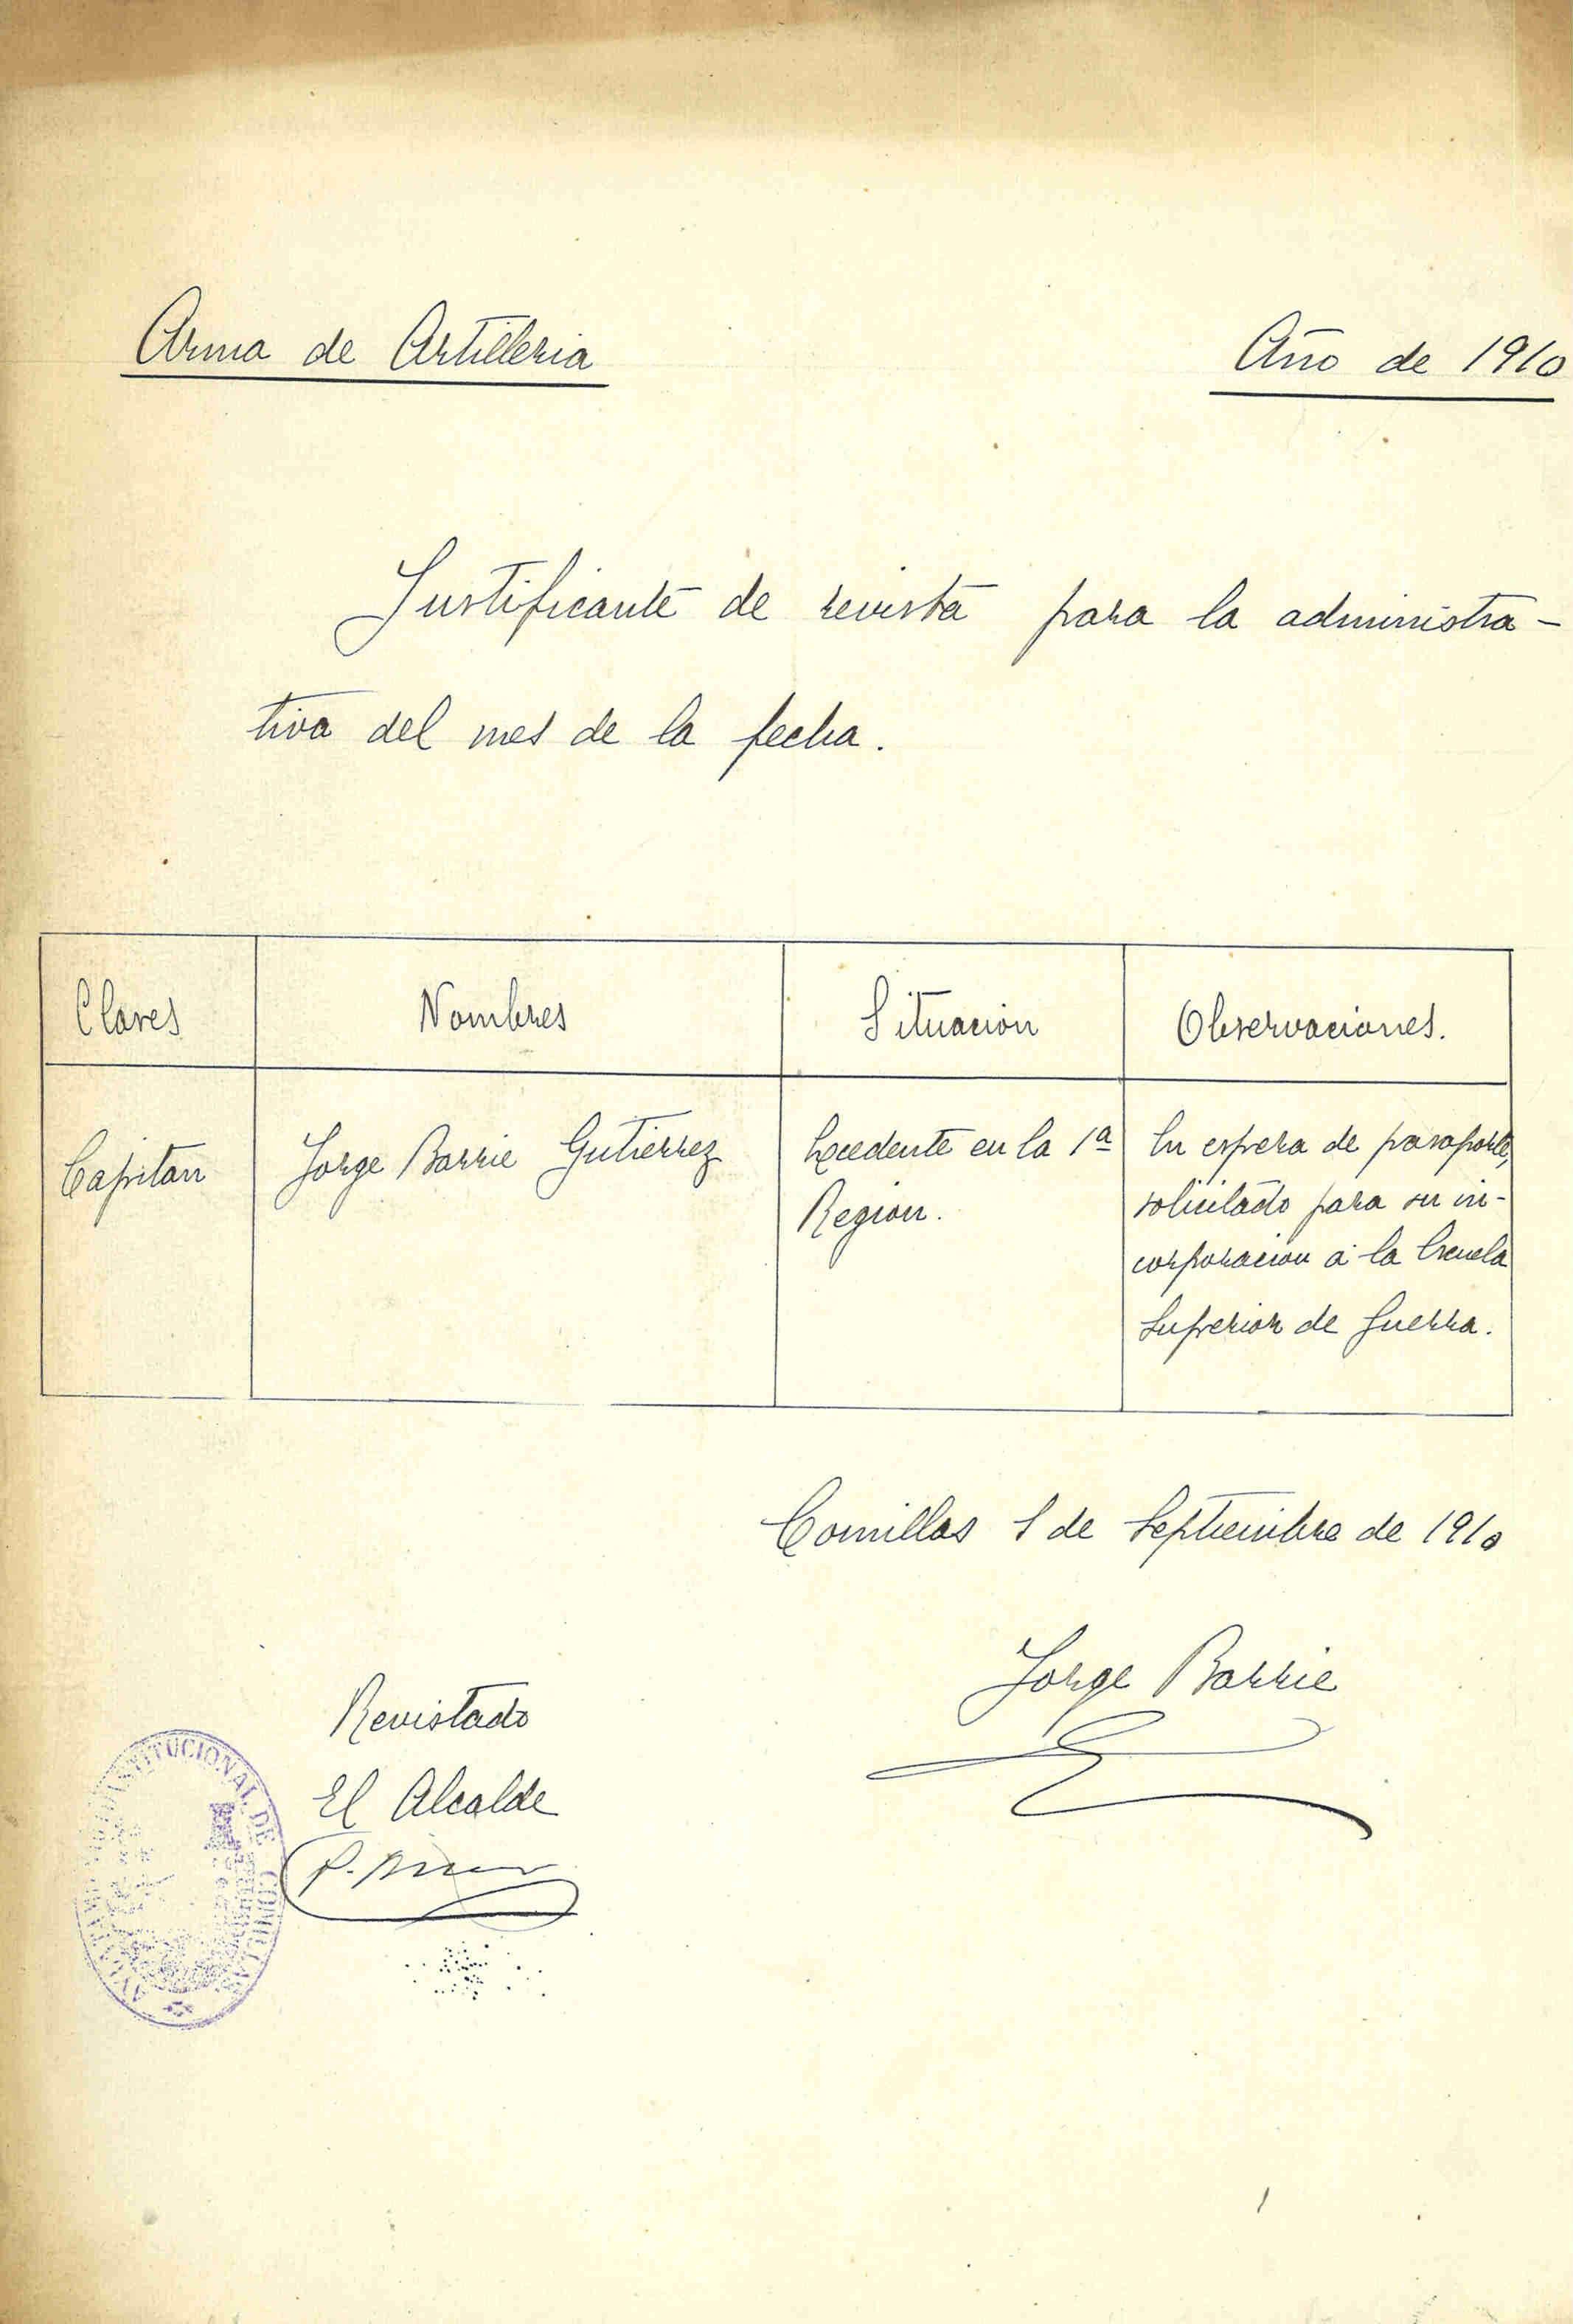 Arma de Artilleria
Año de 1910
Justificante de revista para la administra-
tiva del mes de la fecha.
Clases
Nombres
Situacion
Observaciones.
Capitan
Jorge Barrie Gutierrez
Excedente en la 1ª
Region.
En espera de pasaporte,
solicitado para su in-
corporacion á la Escuela
Superior de Guerra.
Comillas 1 de Septiembre de 1910
Jorge Barrie
Revistado
El Alcalde
CONSTITUCIONAL DE COMILLAS